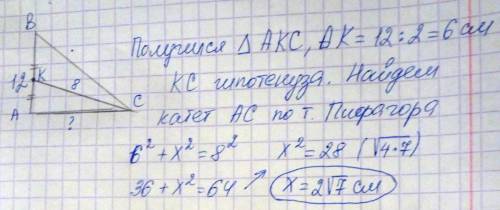 B
12
K
8
A
C
?
Получился △ AKC, AK = 12:2 = 6 см
KC гипотенуза. Найдем
катет AC по т. Пифагора
6² + x² = 8²
x² = 28 (√4·7)
36 + x² = 64 ↗
x = 2√7 см